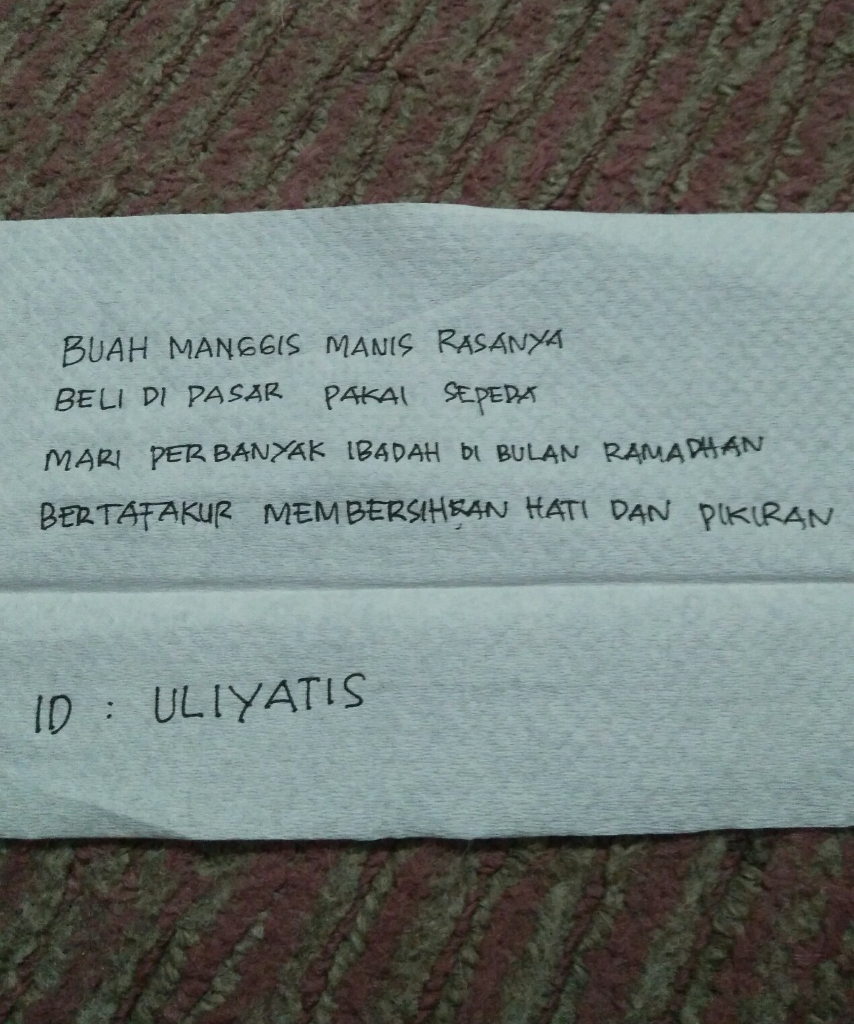 BUAH MANGGIS MANIS RASANYA
BELI DI PASAR PAKAI SEPEDA
MARI PERBANYAK IBADAH DI BULAN RAMADHAN
BERTAFAKUR MEMBERSIHKAN HATI DAN PIKIRAN
ID : ULIYATIS